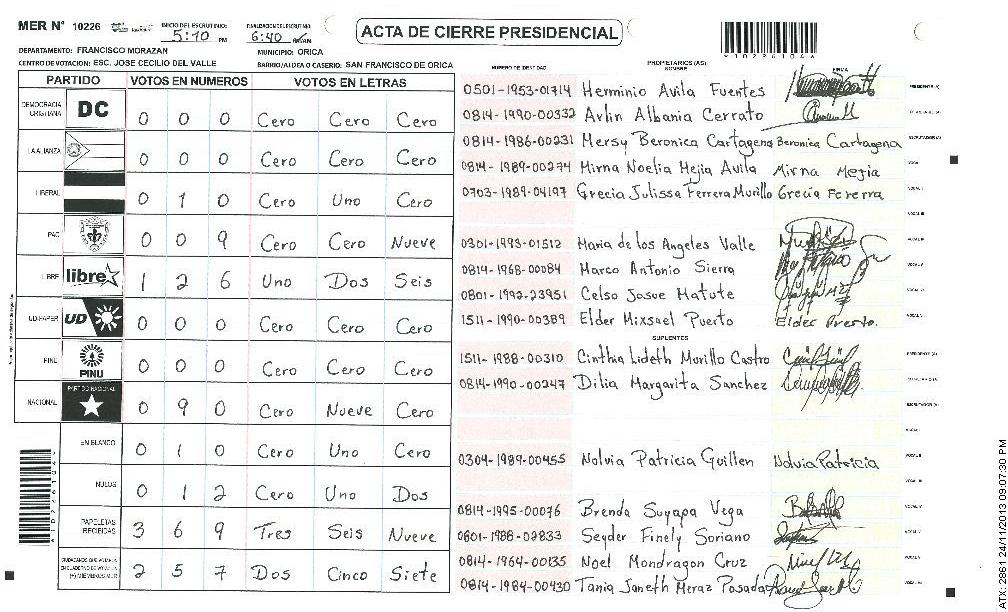 MER N° 10226
INICIO DEL ESCRUTINIO: 5:10 PM
FINALIZACION DEL ESCRUTINIO: 6:40
ACTA DE CIERRE PRESIDENCIAL
DEPARTAMENTO: FRANCISCO MORAZAN
MUNICIPIO: ORICA
CENTRO DE VOTACION: ESC. JOSE CECILIO DEL VALLE
BARRIO/ALDEA O CASERIO: SAN FRANCISCO DE ORICA
PARTIDO VOTOS EN NUMEROS VOTOS EN LETRAS
DEMOCRACIA CRISTIANA DC 0 0 0 Cero Cero Cero
LA ALIANZA 0 0 0 Cero Cero Cero
LIBERAL 0 1 0 Cero Uno Cero
PAC 0 0 9 Cero Cero Nueve
LIBRE libre 1 2 6 Uno Dos Seis
UD-FAPER UD 0 0 0 Cero Cero Cero
PINU 0 0 0 Cero Cero Cero
NACIONAL PARTIDO NACIONAL 0 9 0 Cero Nueve Cero
EN BLANCO 0 1 0 Cero Uno Cero
NULOS 0 1 2 Cero Uno Dos
PAPELETAS RECIBIDAS 3 6 9 Tres Seis Nueve
CIUDADANOS QUE VOTARON EN CUADERNO DE VOTACION (+) MIEMBROS MER 2 5 7 Dos Cinco Siete
NUMERO DE IDENTIDAD PROPIETARIOS (AS) NOMBRE FIRMA
0501-1953-01714 Herminio Avila Fuentes PRESIDENTE (A)
0814-1990-00332 Arlin Albania Cerrato
0814-1986-00231 Mersy Beronica Cartagena Beronica Cartagena ESCRUTADOR (A)
0814-1989-00274 Mirna Noelia Mejia Avila Mirna Mejia
0703-1989-04197 Grecia Julissa Ferrera Murillo Grecia Ferrera
0301-1993-01512 Maria de los Angeles Valle
0814-1968-00084 Marco Antonio Sierra
0801-1992-23951 Celso Josue Matute
1511-1990-00389 Elder Mixsael Puerto
SUPLENTES
1511-1988-00310 Cinthia Lideth Murillo Castro
0814-1990-00247 Dilia Margarita Sanchez
0304-1989-00455 Nolvia Patricia Guillen Nolvia Patricia
0814-1995-00076 Brenda Suyapa Vega
0801-1988-02833 Seyder Finely Soriano
0814-1964-00135 Noel Mondragon Cruz
0814-1984-00430 Tania Janeth Meraz Posadas
ATX: 2961 24/11/2013 09:07:30 PM